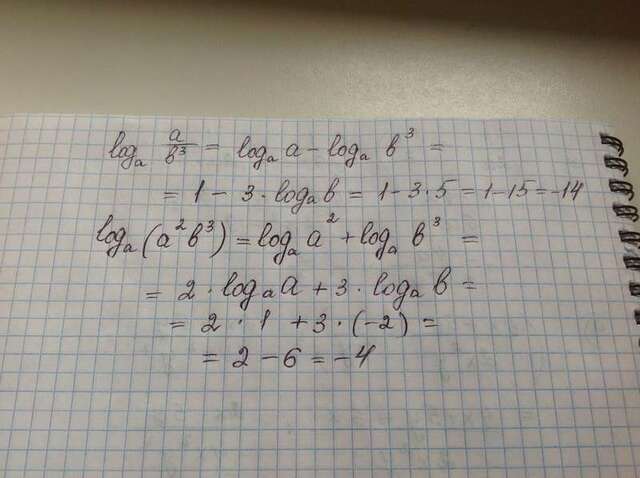 logₐ a/b³ = logₐ a - logₐ b³ =
= 1 - 3 · logₐ b = 1 - 3 · 5 = 1 - 15 = -14
logₐ (a²b³) = logₐ a² + logₐ b³ =
= 2 · logₐ a + 3 · logₐ b =
= 2 · 1 + 3 · (-2) =
= 2 - 6 = -4